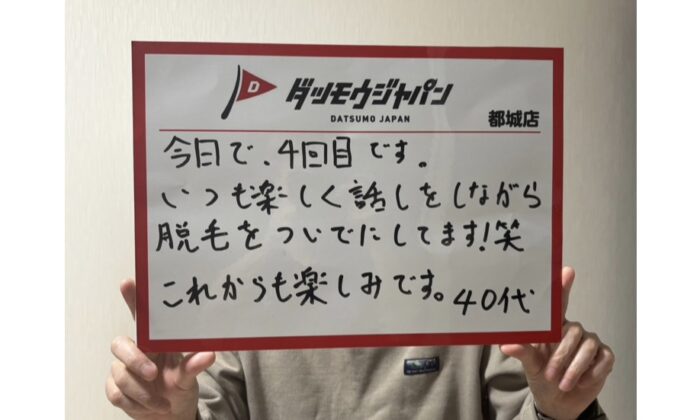 D
ダツモウジャパン
DATSUMO JAPAN
都城店
今日で、4回目です。
いつも楽しく話しをしながら
脱毛をついでにしてます!笑
これからも楽しみです。40代